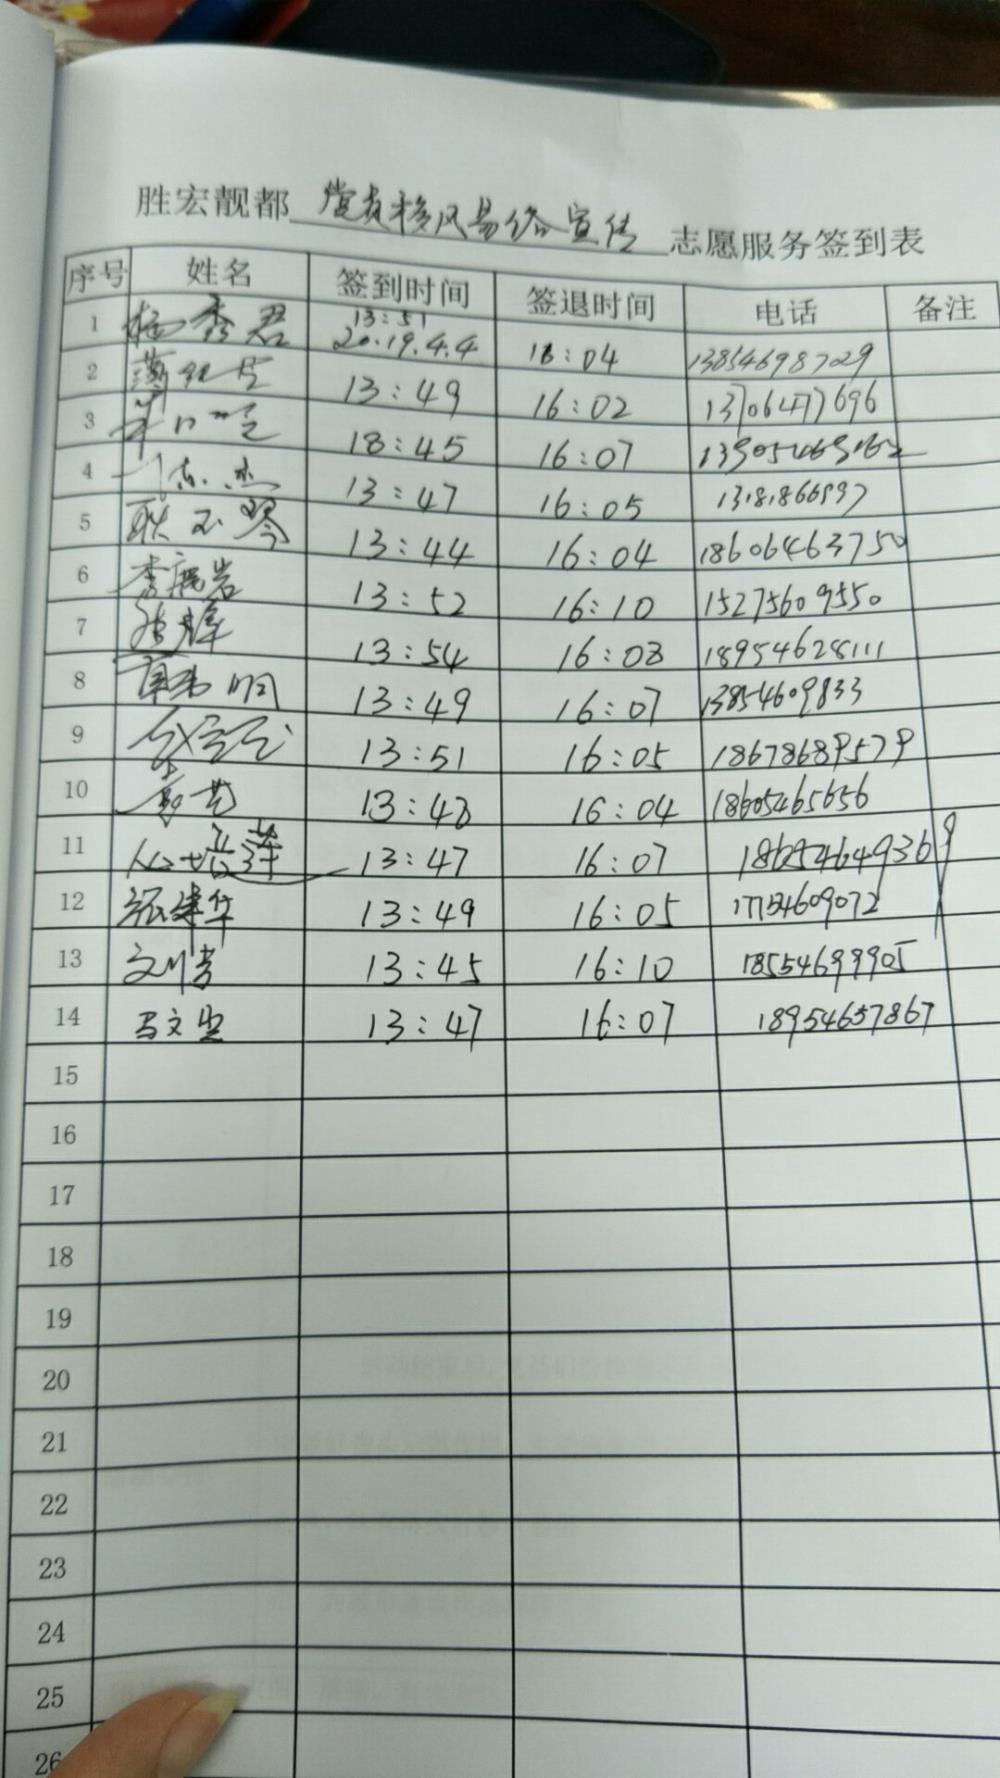 胜宏靓都 党员移风易俗宣传 志愿服务签到表
序号 姓名 签到时间 签退时间 电话 备注
1 杨秀君 13:51 2019.4.4 16:04 13854698729
2 13:49 16:02 13706477696
3 18:45 16:07
4 13:47 16:05
5 耿玉琴 13:44 16:04 18606463750
6 13:52 16:10 15275609550
7 13:54 16:08 18954628111
8 明 13:49 16:07 13854609833
9 13:51 16:05 18678689579
10 13:48 16:04 18605465656
11 13:47 16:07 18625464936
12 张建华 13:49 16:05 17754609072
13 13:45 16:10 18554699905
14 马文生 13:47 16:07 18954657867
15
16
17
18
19
20
21
22
23
24
25
26